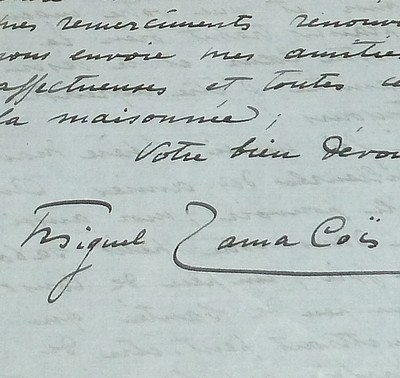 mes remerciments renouv
vous envoie mes amitiés
affectueuses et toutes ce
la maisonnée ;
Votre bien dévou
Miguel Zamacoïs